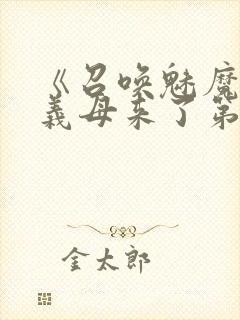 《召唤魅魔
义母来了第
金太郎